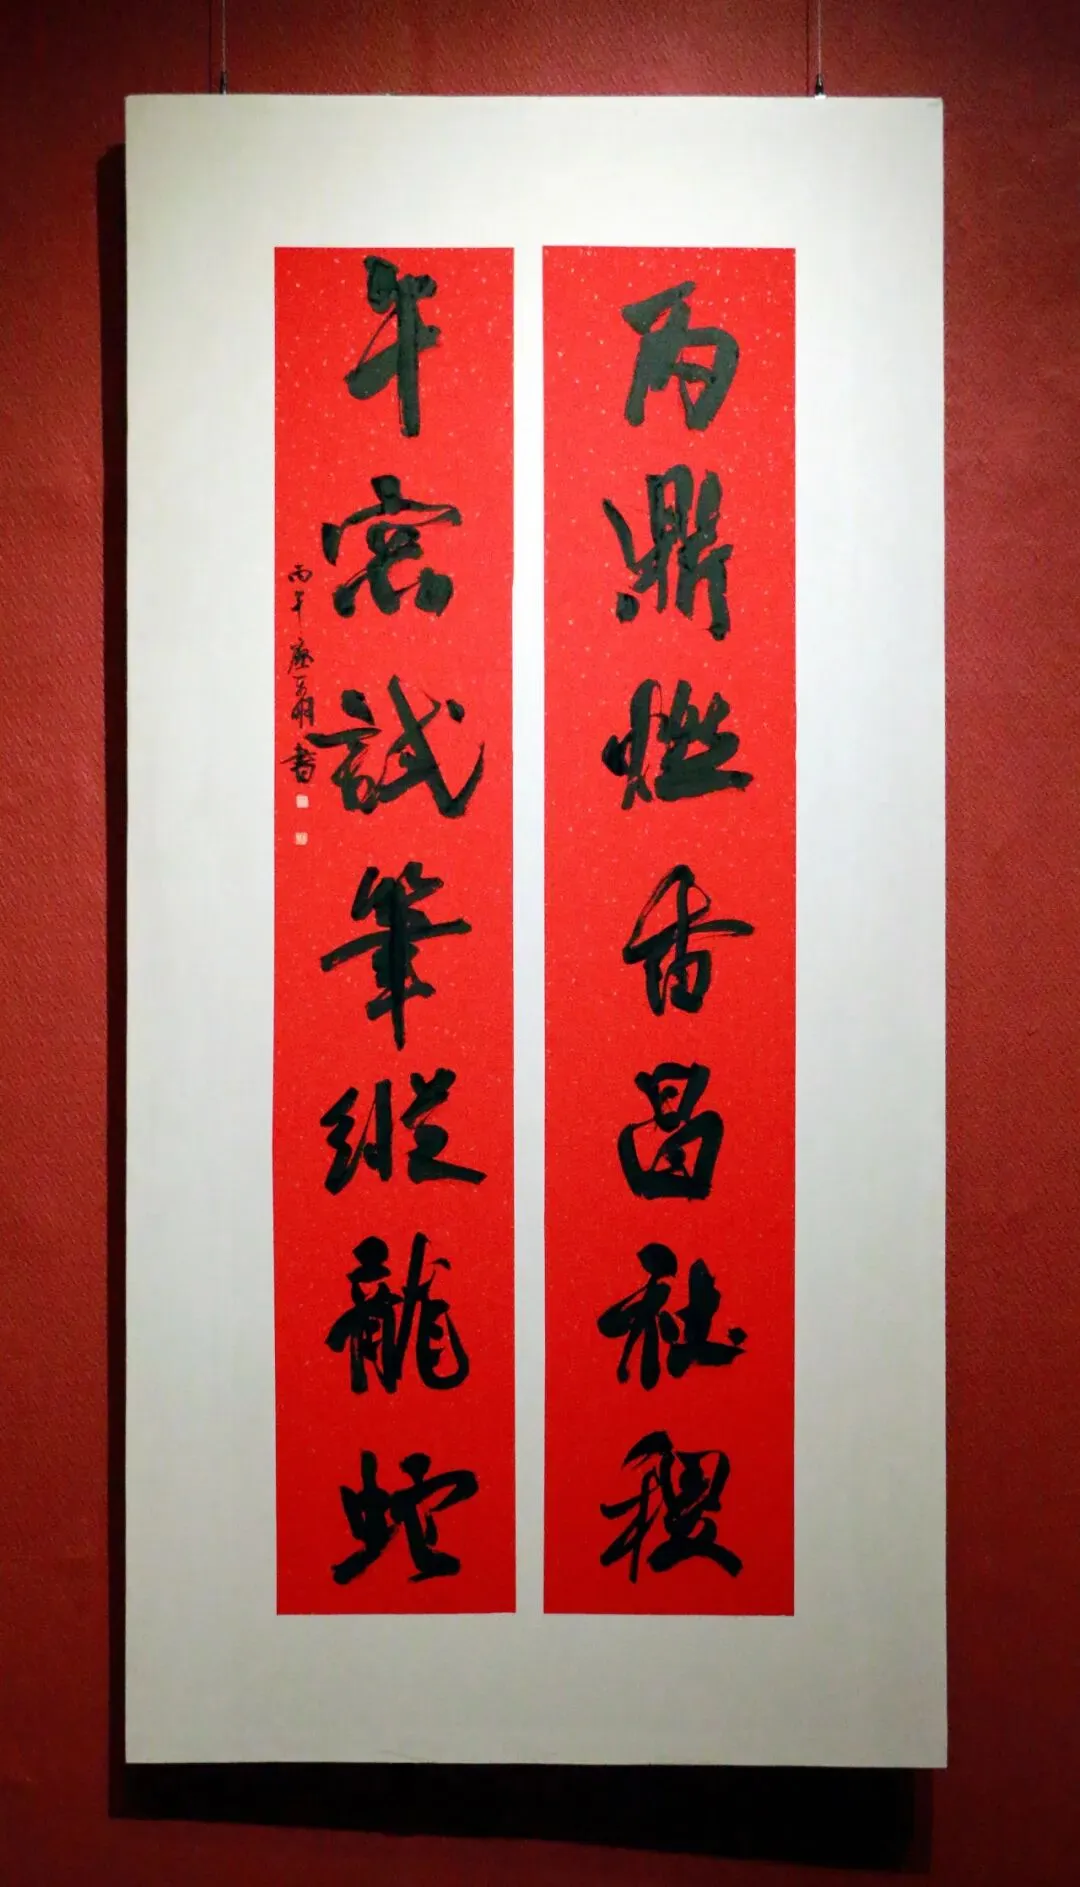 丙鼎燃香昌社稷
午窗試筆縱龍蛇
丙午 書